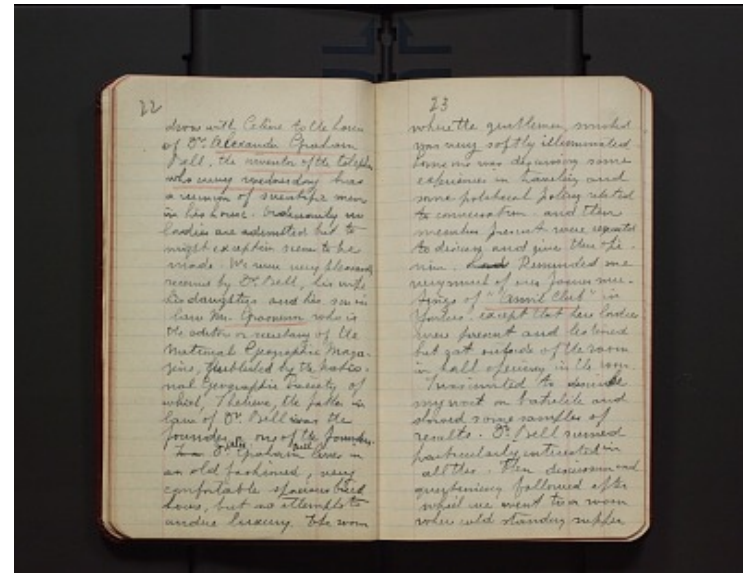 22
drove with Celine to the house
of Dr. Alexander Graham
Bell, the inventor of the telephone
who every wednesday has
a reunion of scientific men
in his house. Ordinarily no
ladies are admitted but to
night exception seem to be
made. We were very pleasantly
received by Dr. Bell, his wife
his daughters and his son in
law Mr. Grosvenor who is
the editor or secretary of the
National Geographic Maga-
zine, published by the Natio-
nal Geographic Society of
which, I believe, the father in
law of Dr. Bell was the
founder or one of the founders.
Dr. Graham Bell lives in
an old fashioned, very
comfortable spacious
house, but no attempts to
undue luxury. The room
23
where the gentlemen smoked
was very softly illuminated
Someone was discussing some
experiences in traveling and
some political policy related
to conversation and then
members present were requested
to discuss and give their opi-
nion. Reminded me
very much of our former mee-
tings of "Canvil Club" in
Yonkers, except that here ladies
were present and listened
but sat outside of the room
in hall opening in the room.
I was invited to describe
my work on Bakelite and
showed some samples of
results. Dr. Bell seemed
particularly interested in
all this. Then discussion and
questioning followed after
which we went to a room
where cold standing supper